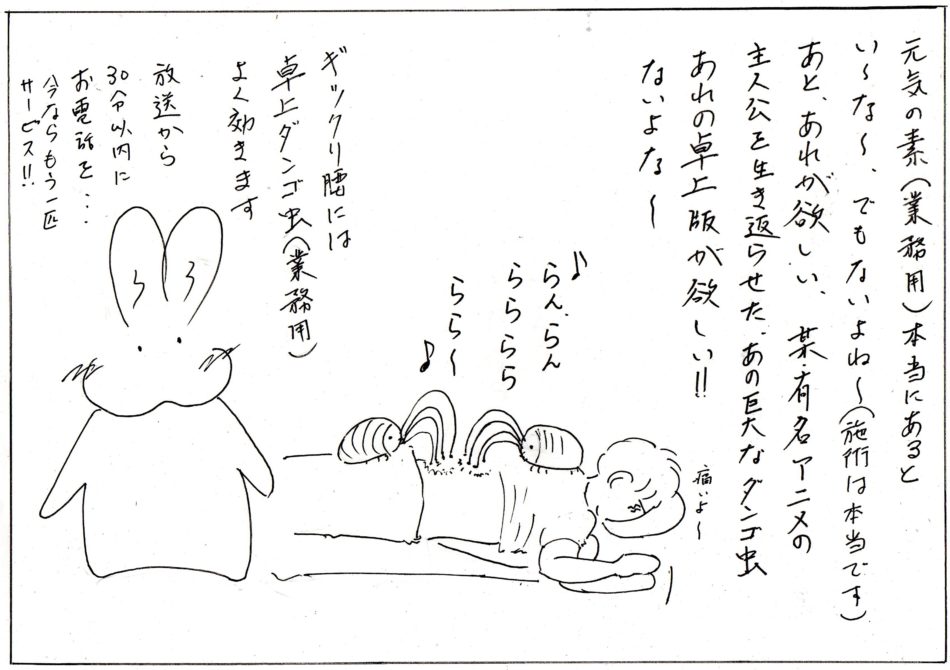 元気の素(業務用)本当にあると
い〜な〜、でもないよね〜(施術は本当です)
あと、あれが欲しい、某・有名アニメの
主人公を生き返らせた、あの巨大なダンゴ虫
あれの卓上版が欲しい!!
ないよな〜
痛いよ〜
♪らん、らん
らららら
ららら〜♪
ギックリ腰には
卓上ダンゴ虫(業務用)
よく効きます
放送から
30分以内に
お電話を・・・
今ならもう一匹
サービス!!